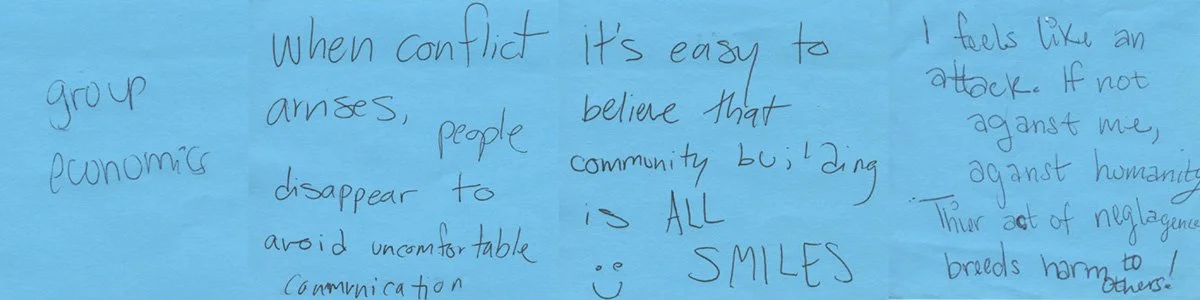 group
economics
when conflict
arises,
people
disappear to
avoid uncomfortable
communication
it's easy to
believe that
community building
is ALL
SMILES
I feels like an
attack. If not
aganst me,
aganst humanity
Thier act of neglagence
breeds harm to
others!